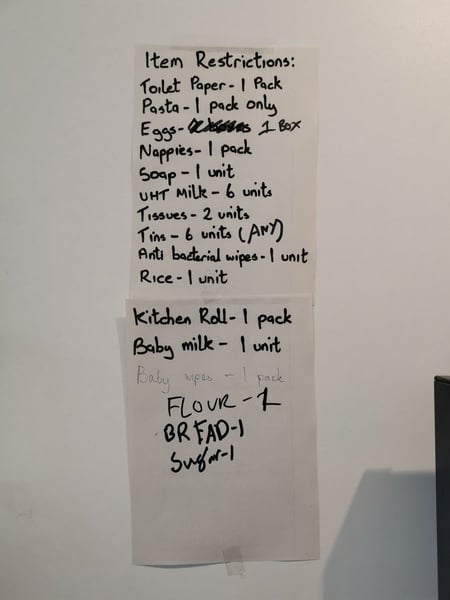 Item Restrictions:
Toilet Paper - 1 Pack
Pasta - 1 pack only
Eggs - 1 Box
Nappies - 1 pack
Soap - 1 unit
UHT Milk - 6 units
Tissues - 2 units
Tins - 6 units (ANY)
Anti bacterial wipes - 1 unit
Rice - 1 unit
Kitchen Roll - 1 pack
Baby milk - 1 unit
Baby wipes - 1 pack
FLOUR - 1
BREAD - 1
Sugar - 1